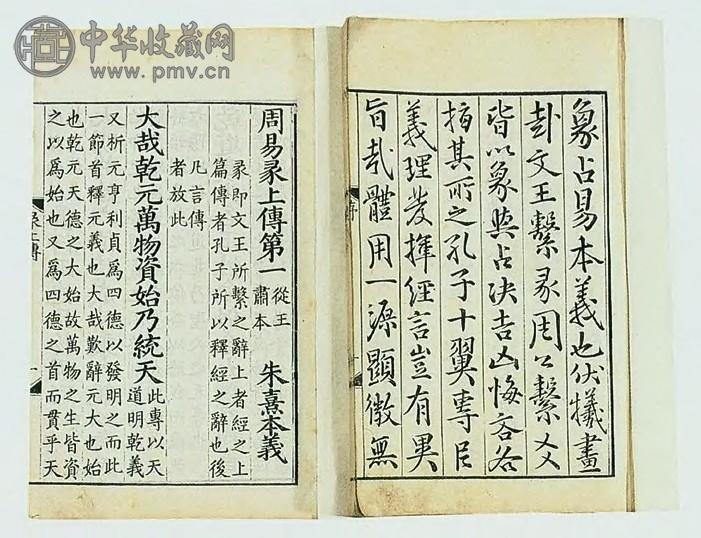 中华收藏网
www.pmv.cn
象占易本義也伏犧畫
卦文王繫彖周公繫爻
皆以象與占决吉凶悔吝各
指其所之孔子十翼専㠯
義理發揮經言豈有異
旨哉體用一源顯微無
周易彖上傳第一
從王
肅本
朱熹本義
彖即文王所繫之辭上者經之上
篇傳者孔子所以釋經之辭也後
凡言傳
者放此
大哉乾元萬物資始乃統天
此專以天
道明乾義
又析元亨利貞爲四德以發明之而此
一節首釋元義也大哉歎辭元大也始
也乾元天德之大始故萬物之生皆資
之以爲始也又爲四德之首而貫乎天